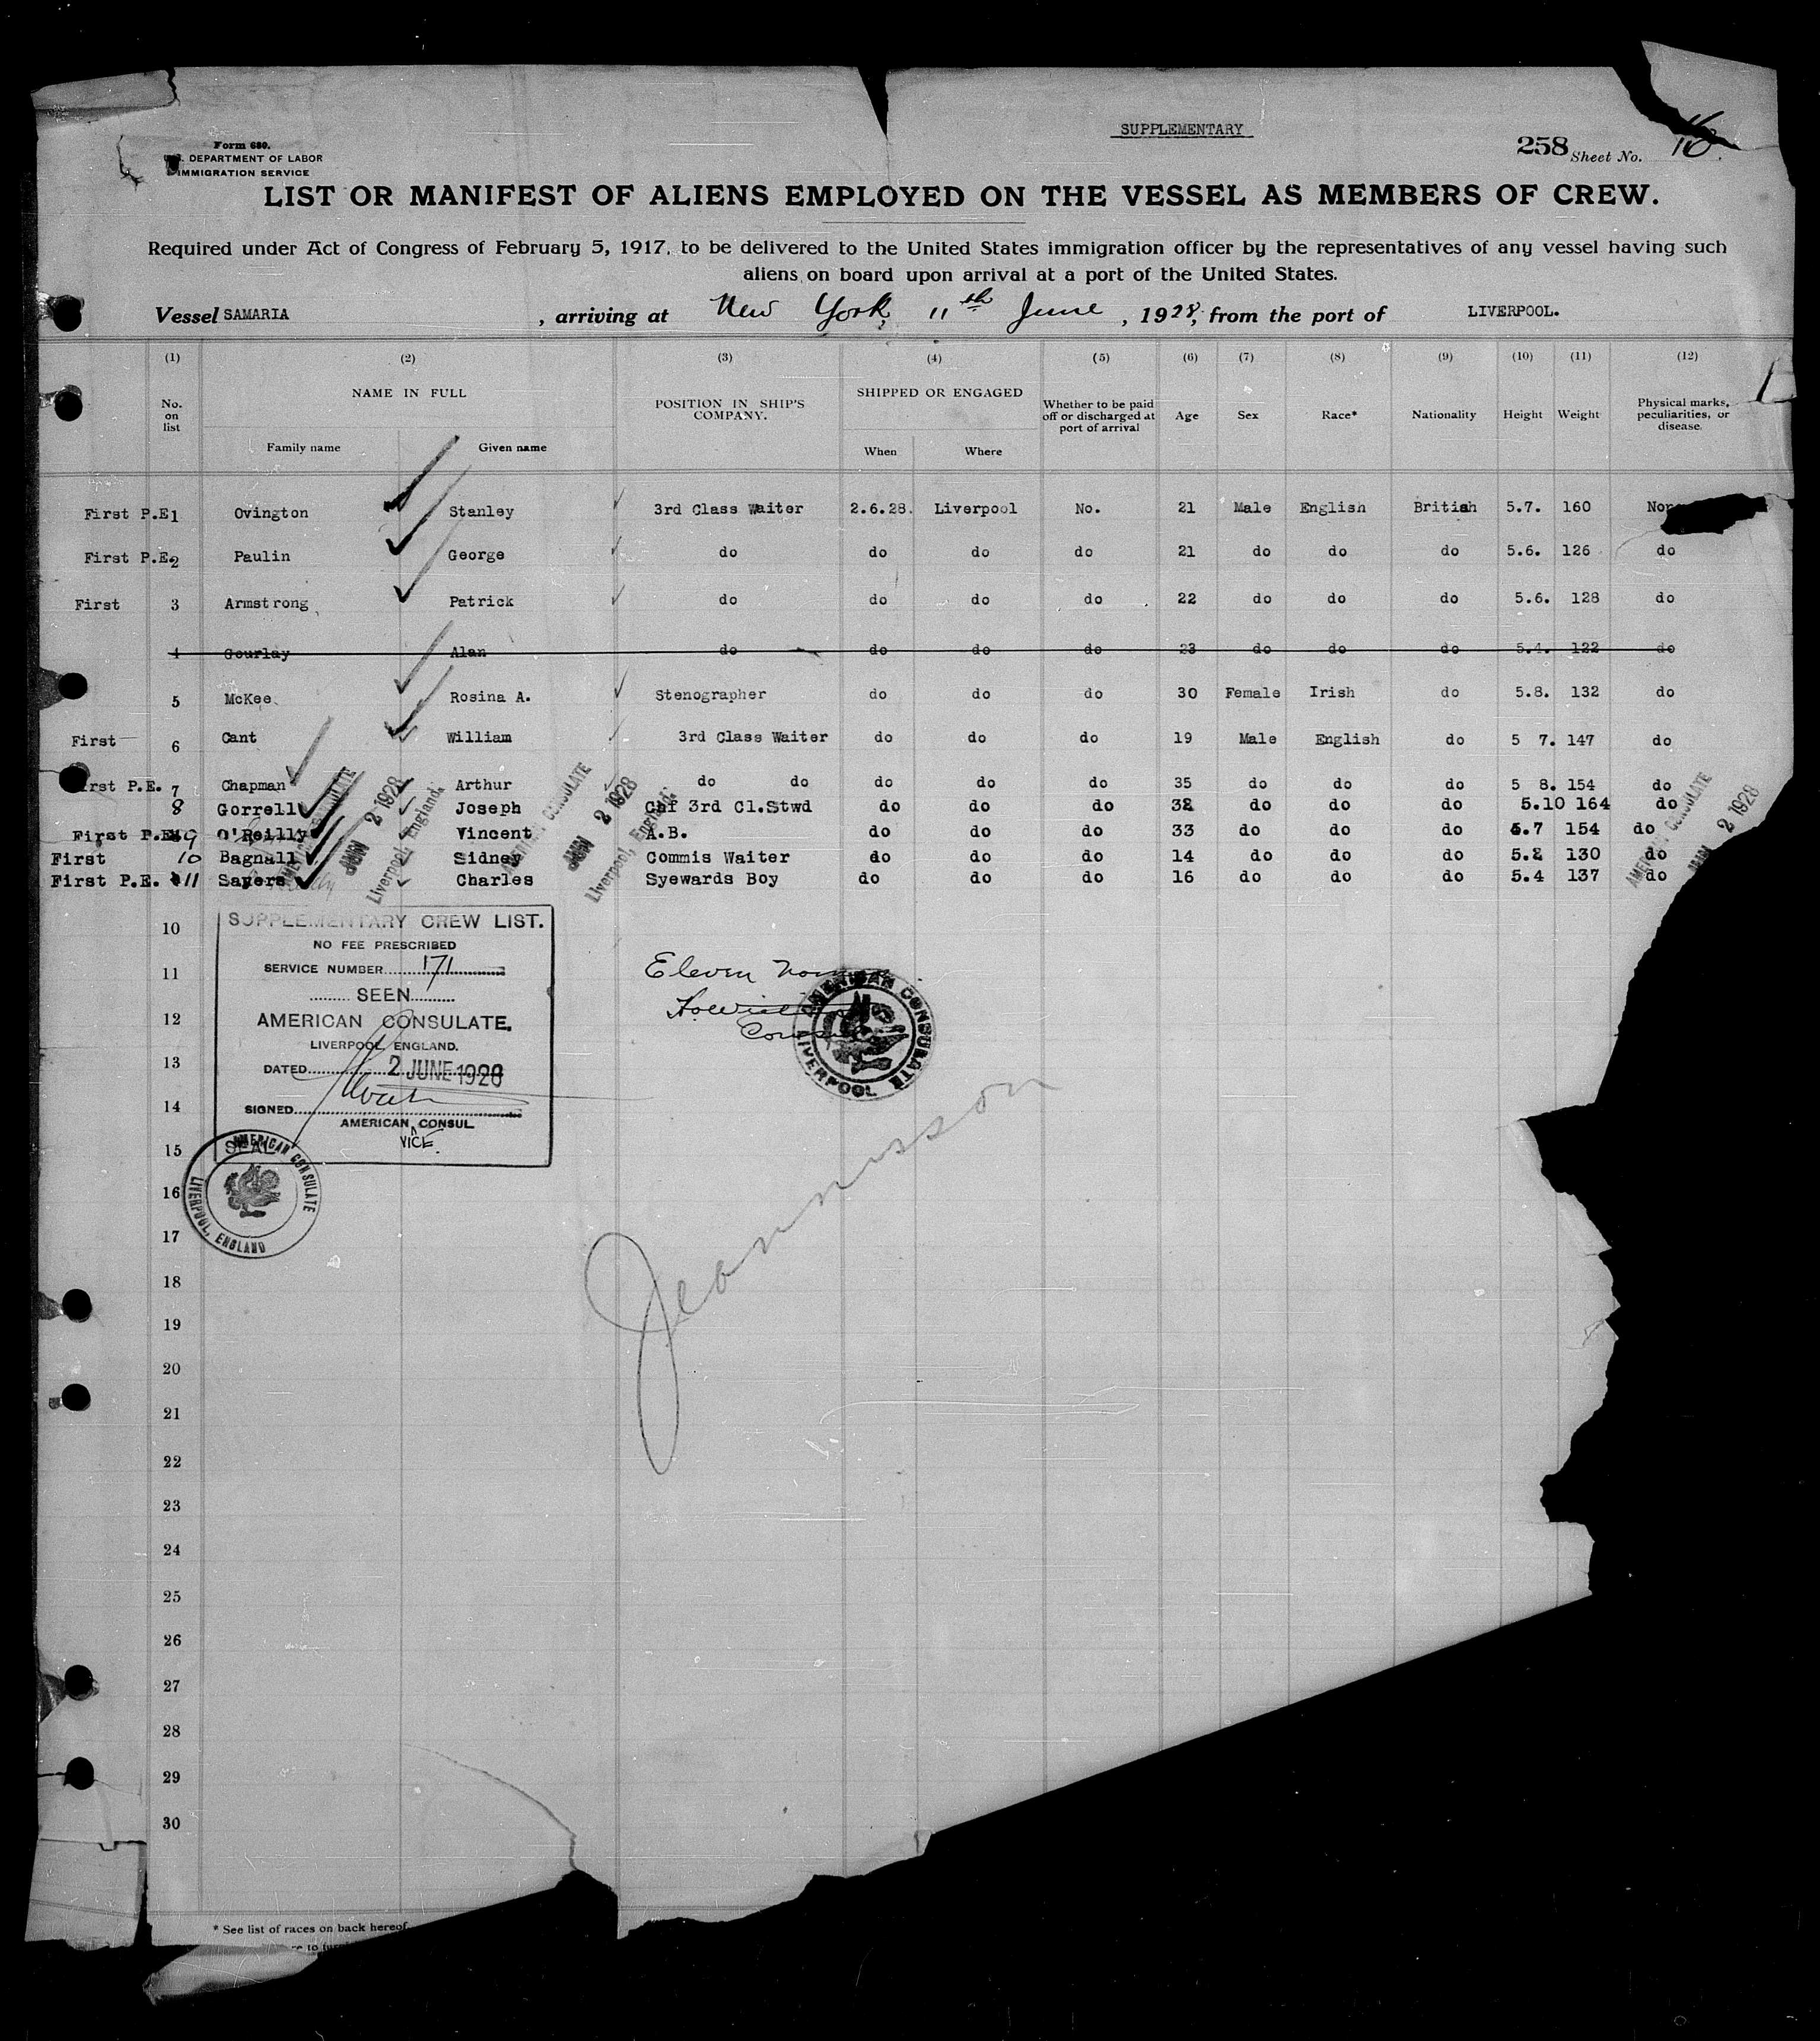 SUPPLEMENTARY
Form 680.
U.S. DEPARTMENT OF LABOR
IMMIGRATION SERVICE
258 Sheet No. 16.
LIST OR MANIFEST OF ALIENS EMPLOYED ON THE VESSEL AS MEMBERS OF CREW.
Required under Act of Congress of February 5, 1917, to be delivered to the United States immigration officer by the representatives of any vessel having such
aliens on board upon arrival at a port of the United States.
Vessel SAMARIA , arriving at New York, 11th June , 1928, from the port of LIVERPOOL.
(1) (2) (3) (4) (5) (6) (7) (8) (9) (10) (11) (12)
No. on list NAME IN FULL Family name Given name POSITION IN SHIP'S COMPANY. SHIPPED OR ENGAGED When Where Whether to be paid off or discharged at port of arrival Age Sex Race* Nationality Height Weight Physical marks, peculiarities, or disease.
First P.E. 1 Ovington Stanley 3rd Class Waiter 2.6.28. Liverpool No. 21 Male English British 5.7. 160
First P.E. 2 Paulin George do do do do 21 do do do 5.6. 126 do
First 3 Armstrong Patrick do do do do 22 do do do 5.6. 128 do
4 Gourlay Alan do do do do 23 do do do 5.4. 122 do
5 McKee Rosina A. Stenographer do do do 30 Female Irish do 5.8. 132 do
First 6 Cant William 3rd Class Waiter do do do 19 Male English do 5 7. 147 do
First P.E. 7 Chapman Arthur do do do do do 35 do do do 5 8. 154 do
8 Gorrell Joseph Chf 3rd Cl.Stwd do do do 38 do do do 5.10 164 do
First P.E. 9 O'Reilly Vincent A.B. do do do 33 do do do 5.7 154 do
First 10 Bagnall Sidney Commis Waiter do do do 14 do do do 5.2 130 do
First P.E. 11 Sayers Charles Syewards Boy do do do 16 do do do 5.4 137 do
AMERICAN CONSULATE
JUN 2 1928
Liverpool, England.
AMERICAN CONSULATE
JUN 2 1928
Liverpool, England.
AMERICAN CONSULATE
JUN 2 1928
10
11
12
13
14
15
16
17
18
19
20
21
22
23
24
25
26
27
28
29
30
SUPPLEMENTARY CREW LIST.
NO FEE PRESCRIBED
SERVICE NUMBER 171
SEEN
AMERICAN CONSULATE.
LIVERPOOL, ENGLAND.
DATED 2 JUNE 1928
SIGNED
AMERICAN CONSUL
VICE.
SEAL
AMERICAN CONSULATE
LIVERPOOL, ENGLAND
Eleven
AMERICAN CONSULATE
LIVERPOOL
* See list of races on back hereof.